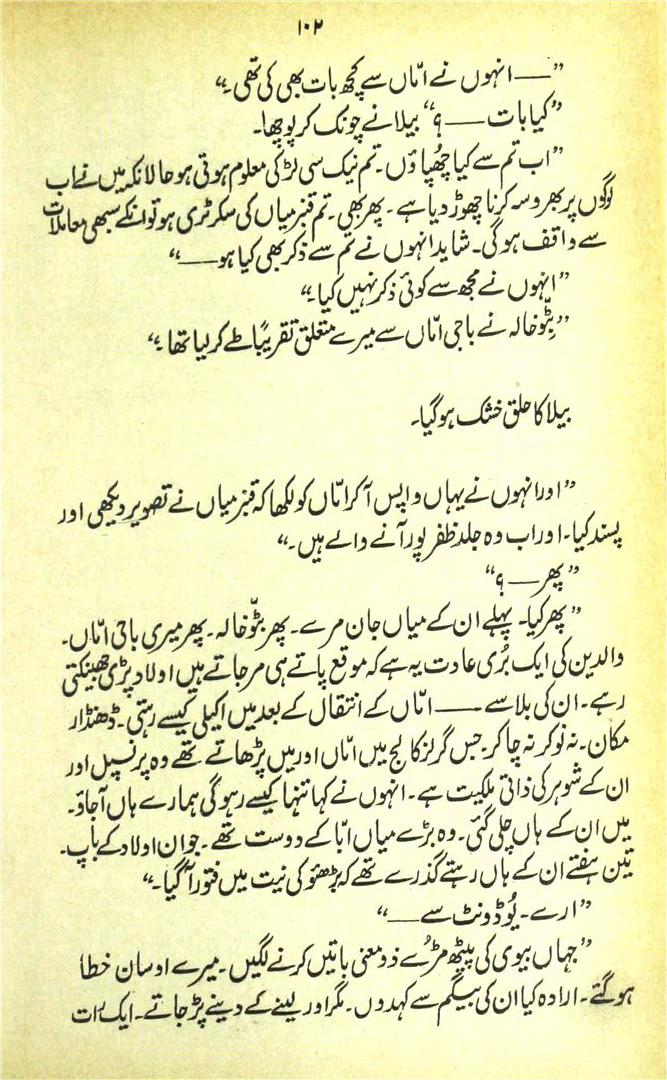 ۱۰۲
”——انہوں نے امّاں سے کچھ بات بھی کی تھی۔“
”کیا بات——؟“ بیلا نے چونک کر پوچھا۔
”اب تم سے کیا چھُپاؤں۔ تم نیک سی لڑکی معلوم ہوتی ہو حالانکہ میں نے اب
لوگوں پر بھروسہ کرنا چھوڑ دیا ہے۔ پھر بھی۔ تم قنبر میاں کی سکرٹری ہو تو انکے سبھی معاملات
سے واقف ہوگی۔ شاید انہوں نے تم سے ذکر بھی کیا ہو——“
”انہوں نے مجھ سے کوئی ذکر نہیں کیا۔“
”بِٹّو خالہ نے باجی امّاں سے میرے متعلق تقریباً طے کر لیا تھا۔“
بیلا کا حلق خشک ہو گیا۔
”اور انہوں نے یہاں واپس آکر امّاں کو لکھا کہ قنبر میاں نے تصویر دیکھی اور
پسند کیا۔ اور اب وہ جلد ظفر پور آنے والے ہیں۔“
”پھر——؟“
”پھر کیا۔ پہلے ان کے میاں جان مرے۔ پھر بٹّو خالہ۔ پھر میری باجی امّاں۔
والدین کی ایک بُری عادت یہ ہے کہ موقع پاتے ہی مر جاتے ہیں اولاد پڑی جھینکتی
رہے۔ ان کی بلا سے——امّاں کے انتقال کے بعد میں اکیلی کیسے رہتی۔ ڈھنڈار
مکان۔ نہ نوکر نہ چاکر۔ جس گرلز کالج میں امّاں اور میں پڑھاتے تھے وہ پرنسپل اور
ان کے شوہر کی ذاتی ملکیت ہے۔ انہوں نے کہا تنہا کیسے رہو گی ہمارے ہاں آجاؤ۔
میں ان کے ہاں چلی گئی۔ وہ بڑے میاں ابّا کے دوست تھے۔ جوان اولاد کے باپ۔
تین ہفتے ان کے ہاں رہتے گذرے تھے کہ بڈھئو کی نیت میں فتور آگیا۔“
”ارے۔ یُو ڈونٹ سے——“
”جہاں بیوی کی پیٹھ مڑے ذو معنی باتیں کرنے لگیں۔ میرے اوسان خطا
ہو گئے۔ ارادہ کیا ان کی بیگم سے کہدوں۔ مگر اور لینے کے دینے پڑ جاتے۔ ایک رات